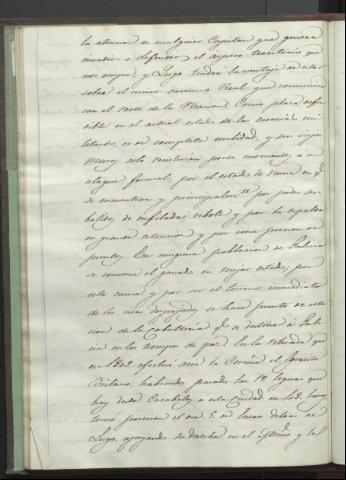 la atencion de cualquier Capitan que quiera
invadir ó defender el aspero territorio que
nos ocupa, y Lugo tendrá la ventaja de estar
sobre el unico camino Real que comunica
con el resto de la Nacion. Como plaza defen
sible en el actual estado de las ciencias mi
litares, es de completa nulidad, y sus viejos
muros solo resistirian pocos momentos á un
ataque formal, por el estado de ruina en q.e
se encuentran y principalm.te por poder ser
batidos de enfilada, rebote y por la espalda
en grande estension y por una porcion de
puntos. En ninguna poblacion de Galicia
se conserva el ganado en mejor estado, por
esta causa y por ser el terreno inmediato
de los mas despejados, se hace punto de esta
cion de la caballeria q.e se destina á Gali
cia en los tiempos de paz. En la retirada que
en 1809 efectuó acia la Coruña el Ejercito
Britano, habiendo pasado las 12 leguas que
hay desde Carabelos á esta ciudad en 48 horas,
tomó posicion el dia 5 en lineas delante de
Lugo, apoyando su derecha en el Miño y la